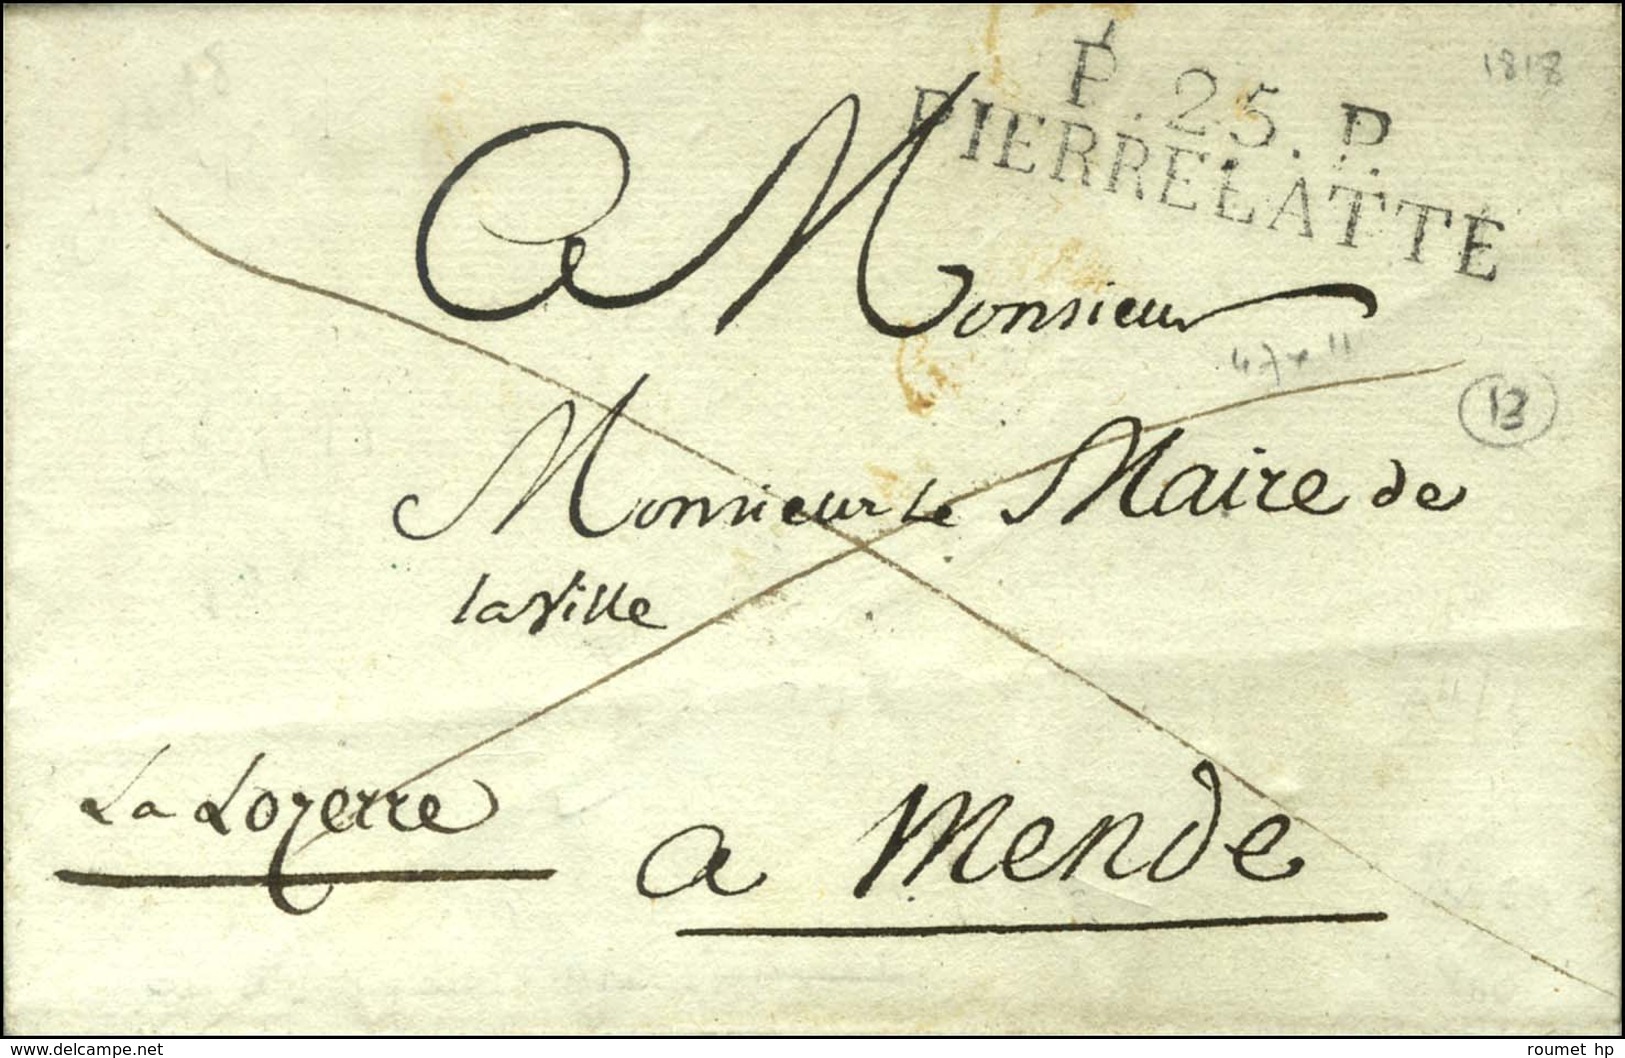 P.25.P.
PIERRELATTE
1818
A Monsieur
47 x 11
13
Monsieur le Maire de
la Ville
La Lozerre
a Mende
www.delcampe.net
roumet_hp